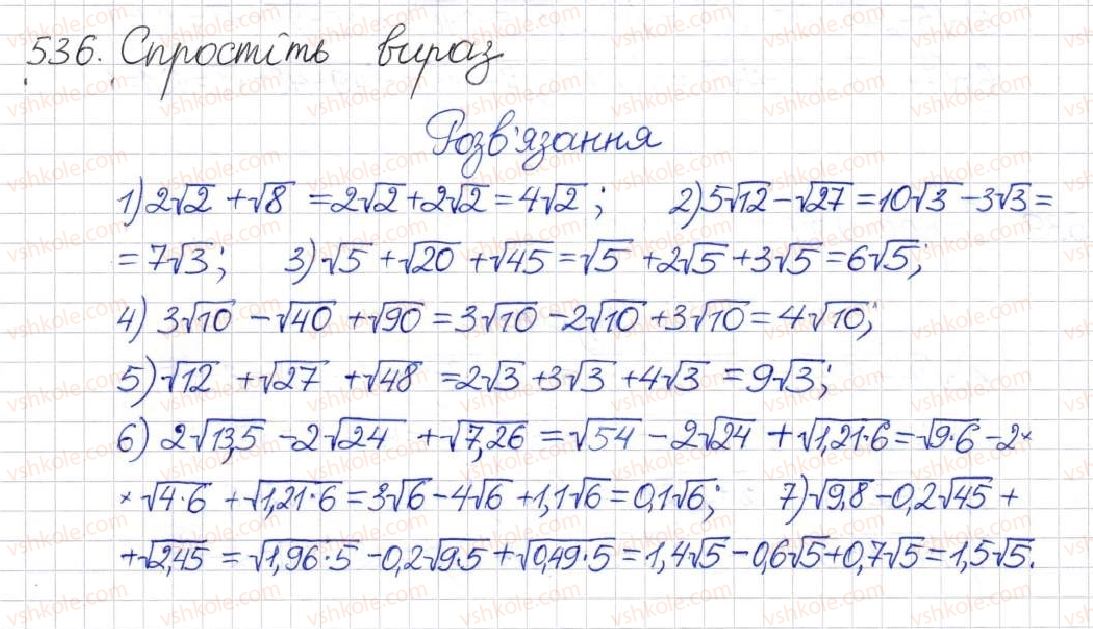 536. Спростіть вираз
Розв'язання
1) 2√2 + √8 = 2√2 + 2√2 = 4√2 ; 2) 5√12 - √27 = 10√3 - 3√3 =
= 7√3 ; 3) √5 + √20 + √45 = √5 + 2√5 + 3√5 = 6√5 ;
4) 3√10 - √40 + √90 = 3√10 - 2√10 + 3√10 = 4√10 ;
5) √12 + √27 + √48 = 2√3 + 3√3 + 4√3 = 9√3 ;
6) 2√13,5 - 2√24 + √7,26 = √54 - 2√24 + √1,21·6 = √9·6 - 2×
× √4·6 + √1,21·6 = 3√6 - 4√6 + 1,1√6 = 0,1√6 ; 7) √9,8 - 0,2√45 +
+ √2,45 = √1,96·5 - 0,2√9·5 + √0,49·5 = 1,4√5 - 0,6√5 + 0,7√5 = 1,5√5.
vshkole.com